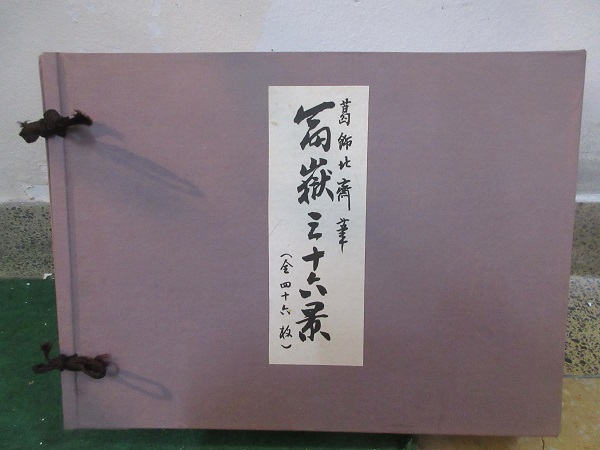 葛飾北齋筆
冨嶽三十六景
(全四十六枚)